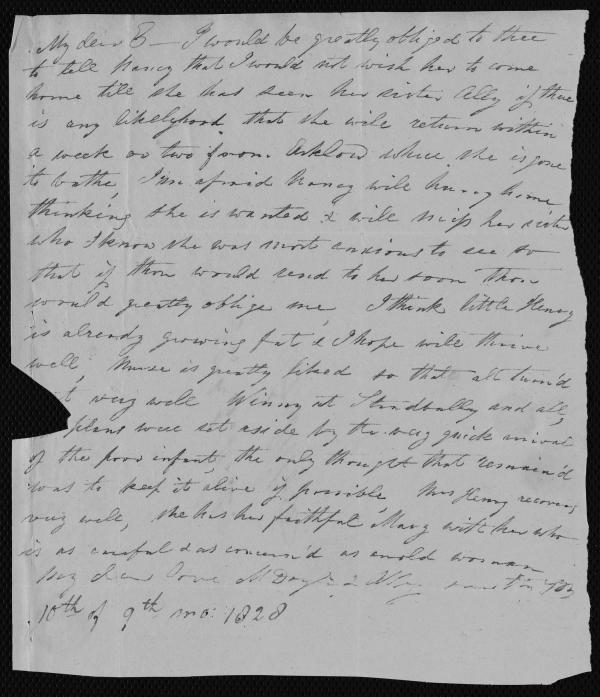 My dear B — I would be greatly obliged to thee
to tell Nancy that I would not wish her to come
home till she has seen her sister Ally if there
is any likelyhood that she will return within
a week or two from Arklow where she is gone
to bathe, I'm afraid Nancy will hurry home
thinking she is wanted & will miss her sister
who I know she was most anxious to see so
that if thou would send to her soon thou
would greatly oblige me, I think little Henry
is already growing fat & I hope will thrive
well, Nurse is greatly liked so that all turn'd
very well Winny at Stradbally and all
plans were set aside by the very quick arrival
of the poor infant, the only thought that remain'd
was to keep it alive if possible, Mrs Henry recovers
very well, she has her faithful Mary with her who
is as careful & as concern'd as an old woman
my dear love
10th of 9th mo: 1828